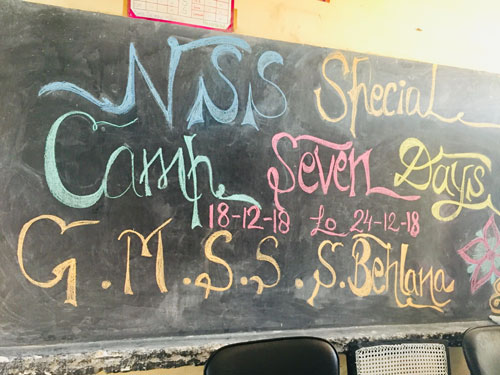 NSS Special
Camp Seven Days
18-12-18 to 24-12-18
G.M.S.S.S.Behlana